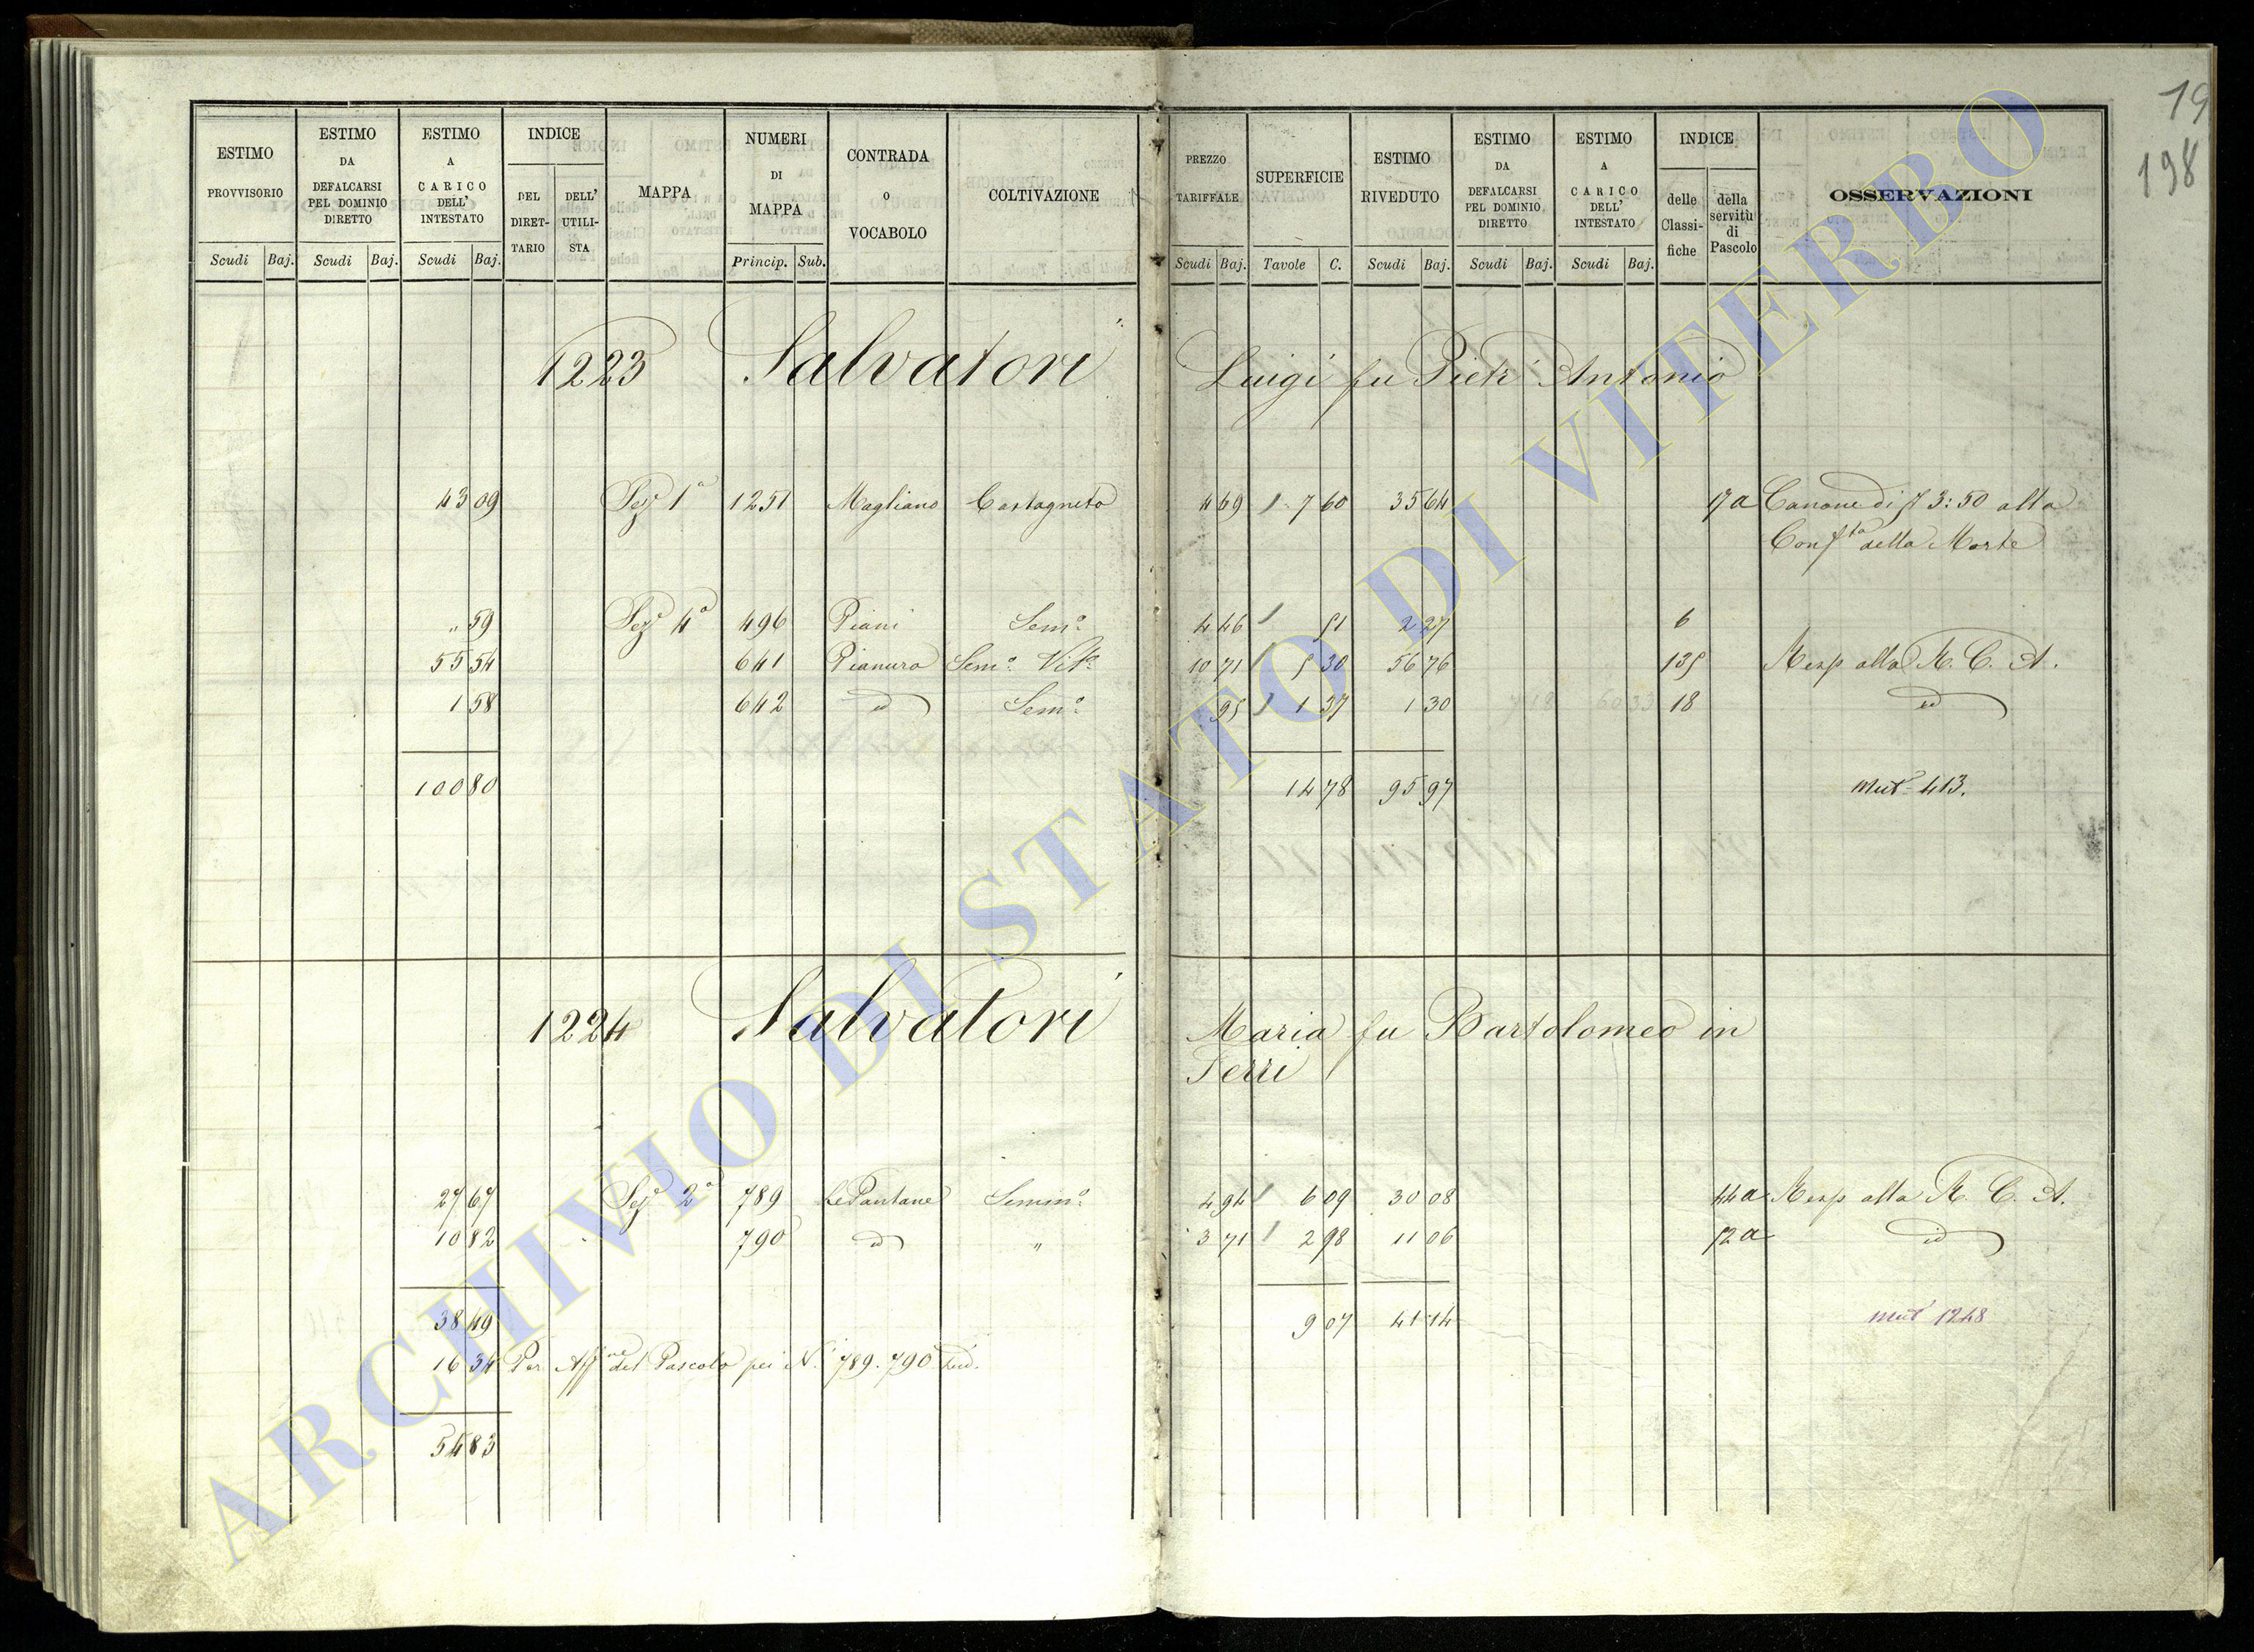 19
198
ESTIMO PROVVISORIO
ESTIMO DA DEFALCARSI PEL DOMINIO DIRETTO
ESTIMO A CARICO DELL' INTESTATO
INDICE
DEL DIRET-TARIO
DELL' UTILI-STA
MAPPA
NUMERI DI MAPPA
CONTRADA o VOCABOLO
COLTIVAZIONE
PREZZO TARIFFALE
SUPERFICIE
ESTIMO RIVEDUTO
ESTIMO DA DEFALCARSI PEL DOMINIO DIRETTO
ESTIMO A CARICO DELL' INTESTATO
INDICE
delle Classi-fiche
della servitù di Pascolo
OSSERVAZIONI
Scudi Baj. Scudi Baj. Scudi Baj. Princip. Sub. Scudi Baj. Tavole C. Scudi Baj. Scudi Baj. Scudi Baj.
1223 Salvatori Luigi fu Pietr'Antonio
43 09 Sez.e 1a 1251 Magliano Castagneto 4 69 7 60 35 64 17a Canone di 3:50 alla
Conf.ta della Morte
" 59 Sez.e 4a 496 Piani Sem.o 4 46 51 2 27 6
55 54 641 Pianura Sem.o Vit.o 10 71 5 30 56 76 135 Resp alla R. C. A.
1 58 642 id Sem.o 95 1 37 1 30 18 id
100 80 14 78 95 97 Mut. 413.
1224 Salvatori Maria fu Bartolomeo in
Ferri
27 67 Sez.e 2a 789 Le Pantane Semin.o 4 94 6 09 30 08 44a Resp alla R. C. A.
10 82 790 id " 3 71 2 98 11 06 12a id
38 49 9 07 41 14 Mut 1248
16 34 Per Aff.ne del Pascolo pei N.i 789. 790
54 83
ARCHIVIO DI STATO DI VITERBO